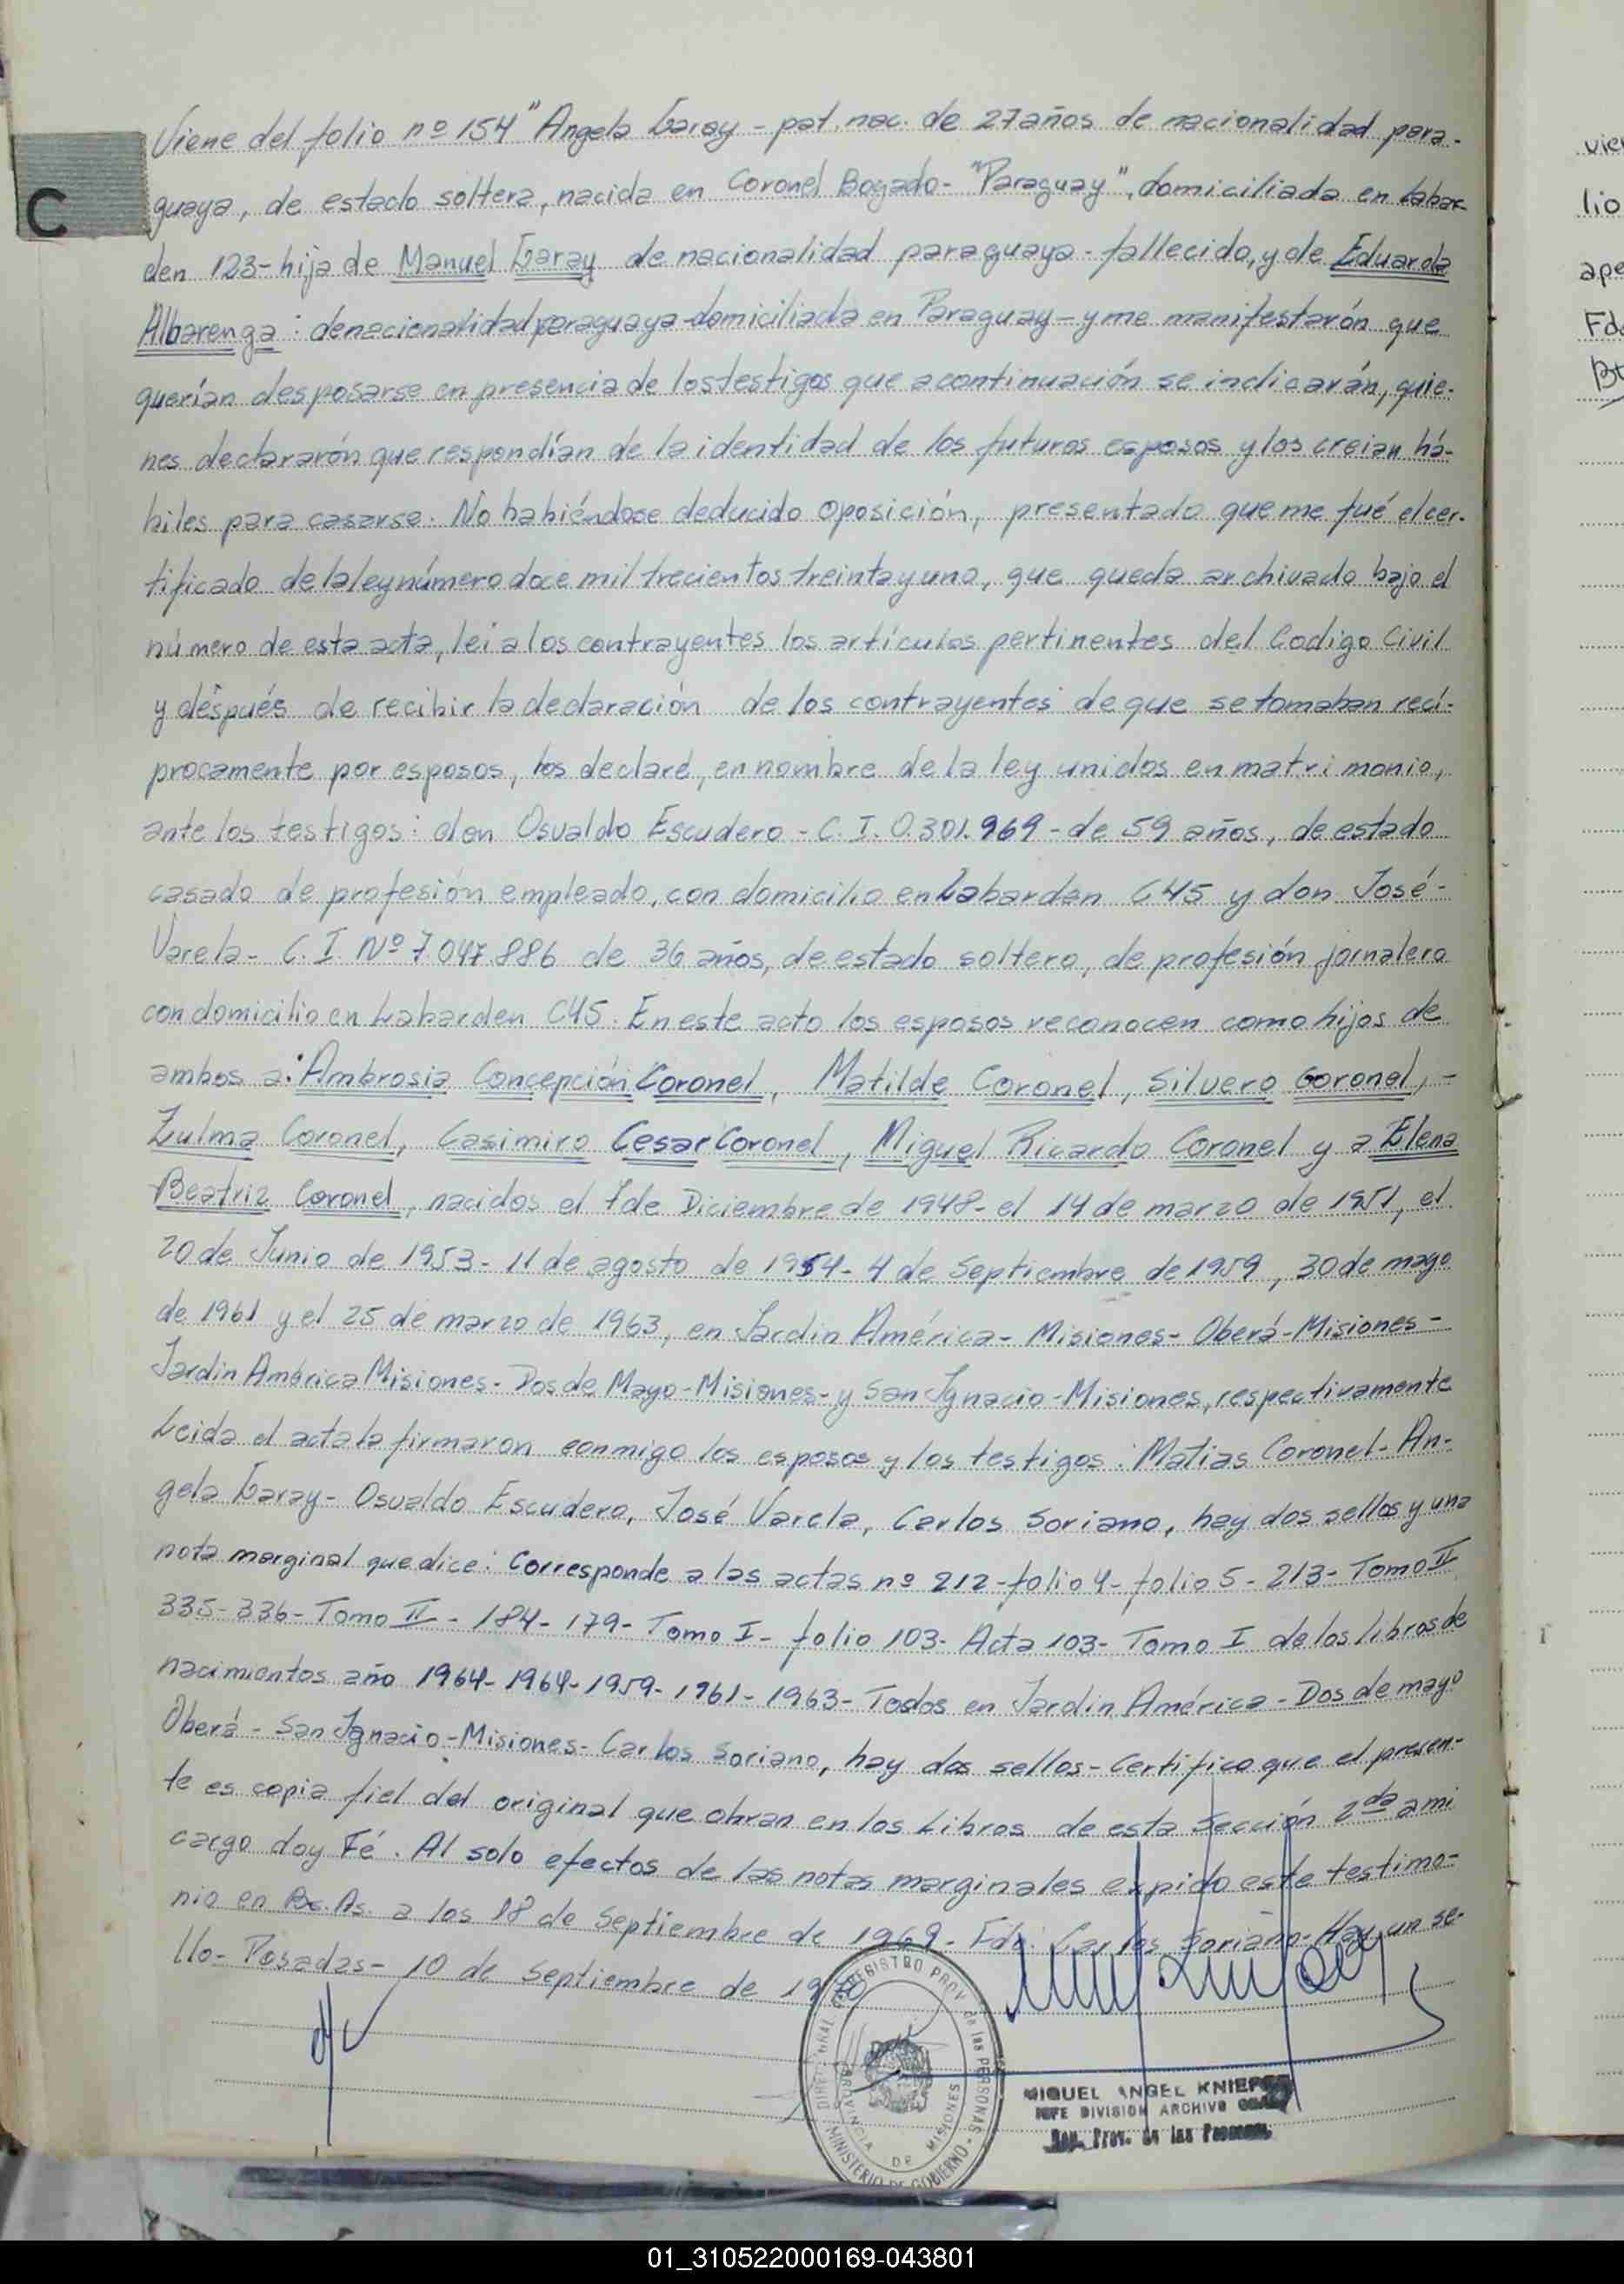 C
Viene del folio nº 154" Angela Garay - pat. nac. de 27 años de nacionalidad para-
guaya, de estado soltera, nacida en Coronel Bogado - "Paraguay", domiciliada en Labar-
den 123 - hija de Manuel Garay de nacionalidad paraguaya - fallecido, y de Eduarda
Albarenga : de nacionalidad paraguaya domiciliada en Paraguay - y me manifestarón que
querían desposarse en presencia de los testigos que a continuación se indicarán, quie-
nes declararón que respondían de la identidad de los futuros esposos y los creian há-
biles para casarse. No habiéndose deducido oposición, presentado que me fué el cer-
tificado de la ley número doce mil trecientos treinta y uno, que queda archivado bajo el
número de esta acta, leí a los contrayentes los artículos pertinentes del Codigo Civil
y después de recibir la declaración de los contrayentes de que se tomaban recí-
procamente por esposos, los declaré, en nombre de la ley unidos en matrimonio,
ante los testigos: don Osvaldo Escudero - C. I. 0.301.969 - de 59 años, de estado
casado de profesión empleado, con domicilio en Labarden C45 y don José -
Varela - C. I. Nº 7.047.886 de 36 años, de estado soltero, de profesión jornalero
con domicilio en Labarden C45. En este acto los esposos reconocen como hijos de
ambos a: Ambrosia Concepción Coronel, Matilde Coronel, Silvero Coronel, -
Zulma Coronel, Casimiro Cesar Coronel, Miguel Ricardo Coronel y a Elena
Beatriz Coronel, nacidos el 7 de Diciembre de 1948 - el 14 de marzo de 1951, el
20 de Junio de 1953 - 11 de agosto de 1954 - 4 de Septiembre de 1959, 30 de mayo
de 1961 y el 25 de marzo de 1963, en Jardin América - Misiones - Oberá - Misiones -
Jardin América Misiones - Dos de Mayo - Misiones - y San Ignacio - Misiones, respectivamente
Leida el acta la firmaron conmigo los esposos y los testigos : Matias Coronel - An-
gela Garay - Osvaldo Escudero, José Varela, Carlos Soriano, hay dos sellos y una
nota marginal que dice: Corresponde a las actas nº 212 - folio 4 - folio 5 - 213 - Tomo II
335 - 336 - Tomo II - 184 - 179 - Tomo I - folio 103 - Acta 103 - Tomo I de los libros de
nacimientos año 1964 - 1964 - 1959 - 1961 - 1963 - Todos en Jardin América - Dos de mayo
Oberá - San Ignacio - Misiones - Carlos Soriano, hay dos sellos - Certifico que el presen-
te es copia fiel del original que obran en los Libros de esta Sección 2da a mi
cargo doy Fé. Al solo efectos de las notas marginales expido este testimo-
nio en Bs. As. a los 18 de Septiembre de 1969 - Fdo. Carlos Soriano - Hay un se-
llo - Posadas - 10 de Septiembre de 1970
REGISTRO PROV. de las PERSONAS
PROVINCIA DE MISIONES
MINISTERIO DE GOBIERNO
MIGUEL ANGEL
JEFE DIVISION ARCHIVO GRAL
Reg. Prov. de las Personas
vie
lio
ape
Fdo
01_310522000169-043801